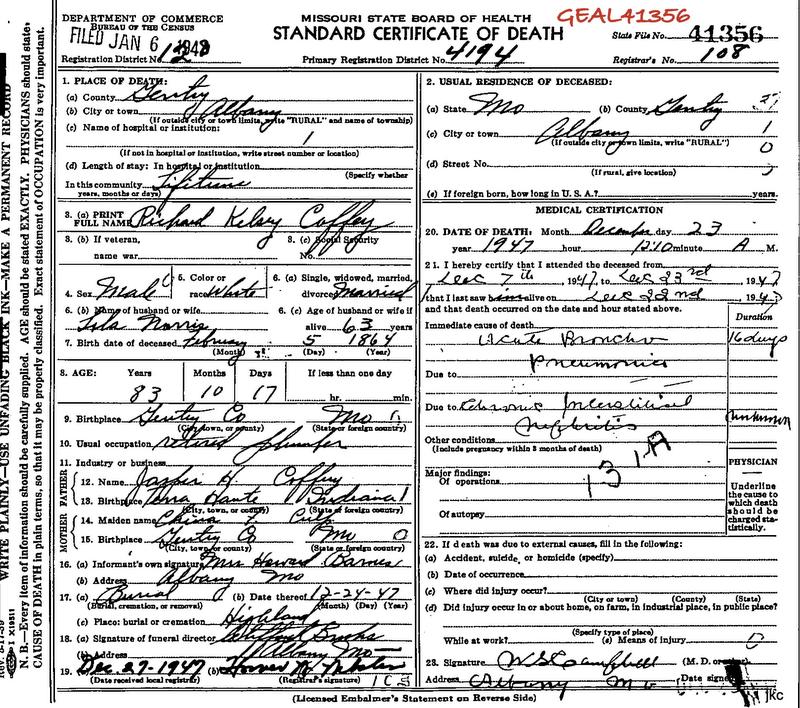 DEPARTMENT OF COMMERCE
BUREAU OF THE CENSUS
FILED JAN 6 1948
Registration District No.
MISSOURI STATE BOARD OF HEALTH
STANDARD CERTIFICATE OF DEATH
Primary Registration District No. 4194
GEAL41356
State File No. 41356
Registrar's No. 108
WRITE PLAINLY—USE UNFADING BLACK INK—MAKE A PERMANENT RECORD
N. B.—Every item of information should be carefully supplied. AGE should be stated EXACTLY. PHYSICIANS should state
CAUSE OF DEATH in plain terms, so that it may be properly classified. Exact statement of OCCUPATION is very important.
1. PLACE OF DEATH:
(a) County Gentry
(b) City or town Albany
(If outside city or town limits, write "RURAL" and name of township)
(c) Name of hospital or institution:
(If not in hospital or institution, write street number or location)
(d) Length of stay: In hospital or institution
(Specify whether
In this community Lifetime
years, months or days)
3. (a) PRINT
FULL NAME Richard Kelsy Coffey
3. (b) If veteran,
name war
3. (c) Social Security
No.
4. Sex Male
5. Color or
race White
6. (a) Single, widowed, married,
divorced Married
6. (b) Name of husband or wife
6. (c) Age of husband or wife if
alive 63 years
7. Birth date of deceased February 5 1864
(Month) (Day) (Year)
8. AGE: Years Months Days If less than one day
83 10 17 hr. min.
9. Birthplace Gentry Co Mo
(City, town, or county) (State or foreign country)
10. Usual occupation retired plumber
11. Industry or business
FATHER
12. Name Jasper H. Coffey
13. Birthplace Terra Haute Indiana
(City, town, or county) (State or foreign country)
MOTHER
14. Maiden name China F. Culp
15. Birthplace Gentry Co Mo
(City, town, or county) (State or foreign country)
16. (a) Informant's own signature Mrs Howard Barnes
(b) Address Albany Mo
17. (a) Burial (b) Date thereof 12-24-47
(Burial, cremation, or removal) (Month) (Day) (Year)
(c) Place: burial or cremation Highland
18. (a) Signature of funeral director
(b) Address Albany Mo
19. (a) Dec. 27-1947 (b)
(Date received local registrar) (Registrar's signature)
2. USUAL RESIDENCE OF DECEASED:
(a) State Mo (b) County Gentry
(c) City or town Albany
(If outside city or town limits, write "RURAL")
(d) Street No.
(If rural, give location)
(e) If foreign born, how long in U. S. A.? years.
MEDICAL CERTIFICATION
20. DATE OF DEATH: Month December day 23
year 1947 hour 12:10 minute A M.
21. I hereby certify that I attended the deceased from
Dec 7th, 1947, to Dec 23rd, 1947
that I last saw him alive on Dec 22nd, 1947
and that death occurred on the date and hour stated above.
Duration
Immediate cause of death
Acute Broncho 16 days
Pneumonia
Due to
Due to Chronic Interstitial
Nephritis unknown
Other conditions
(Include pregnancy within 3 months of death)
131A
Major findings:
Of operations
Of autopsy
PHYSICIAN
Underline
the cause to
which death
should be
charged sta-
tistically.
22. If death was due to external causes, fill in the following:
(a) Accident, suicide, or homicide (specify)
(b) Date of occurrence
(c) Where did injury occur?
(City or town) (County) (State)
(d) Did injury occur in or about home, on farm, in industrial place, in public place?
(Specify type of place)
While at work? (e) Means of injury
23. Signature W S Campbell (M. D. or
Address Albany Mo Date signed
(Licensed Embalmer's Statement on Reverse Side)
jkc